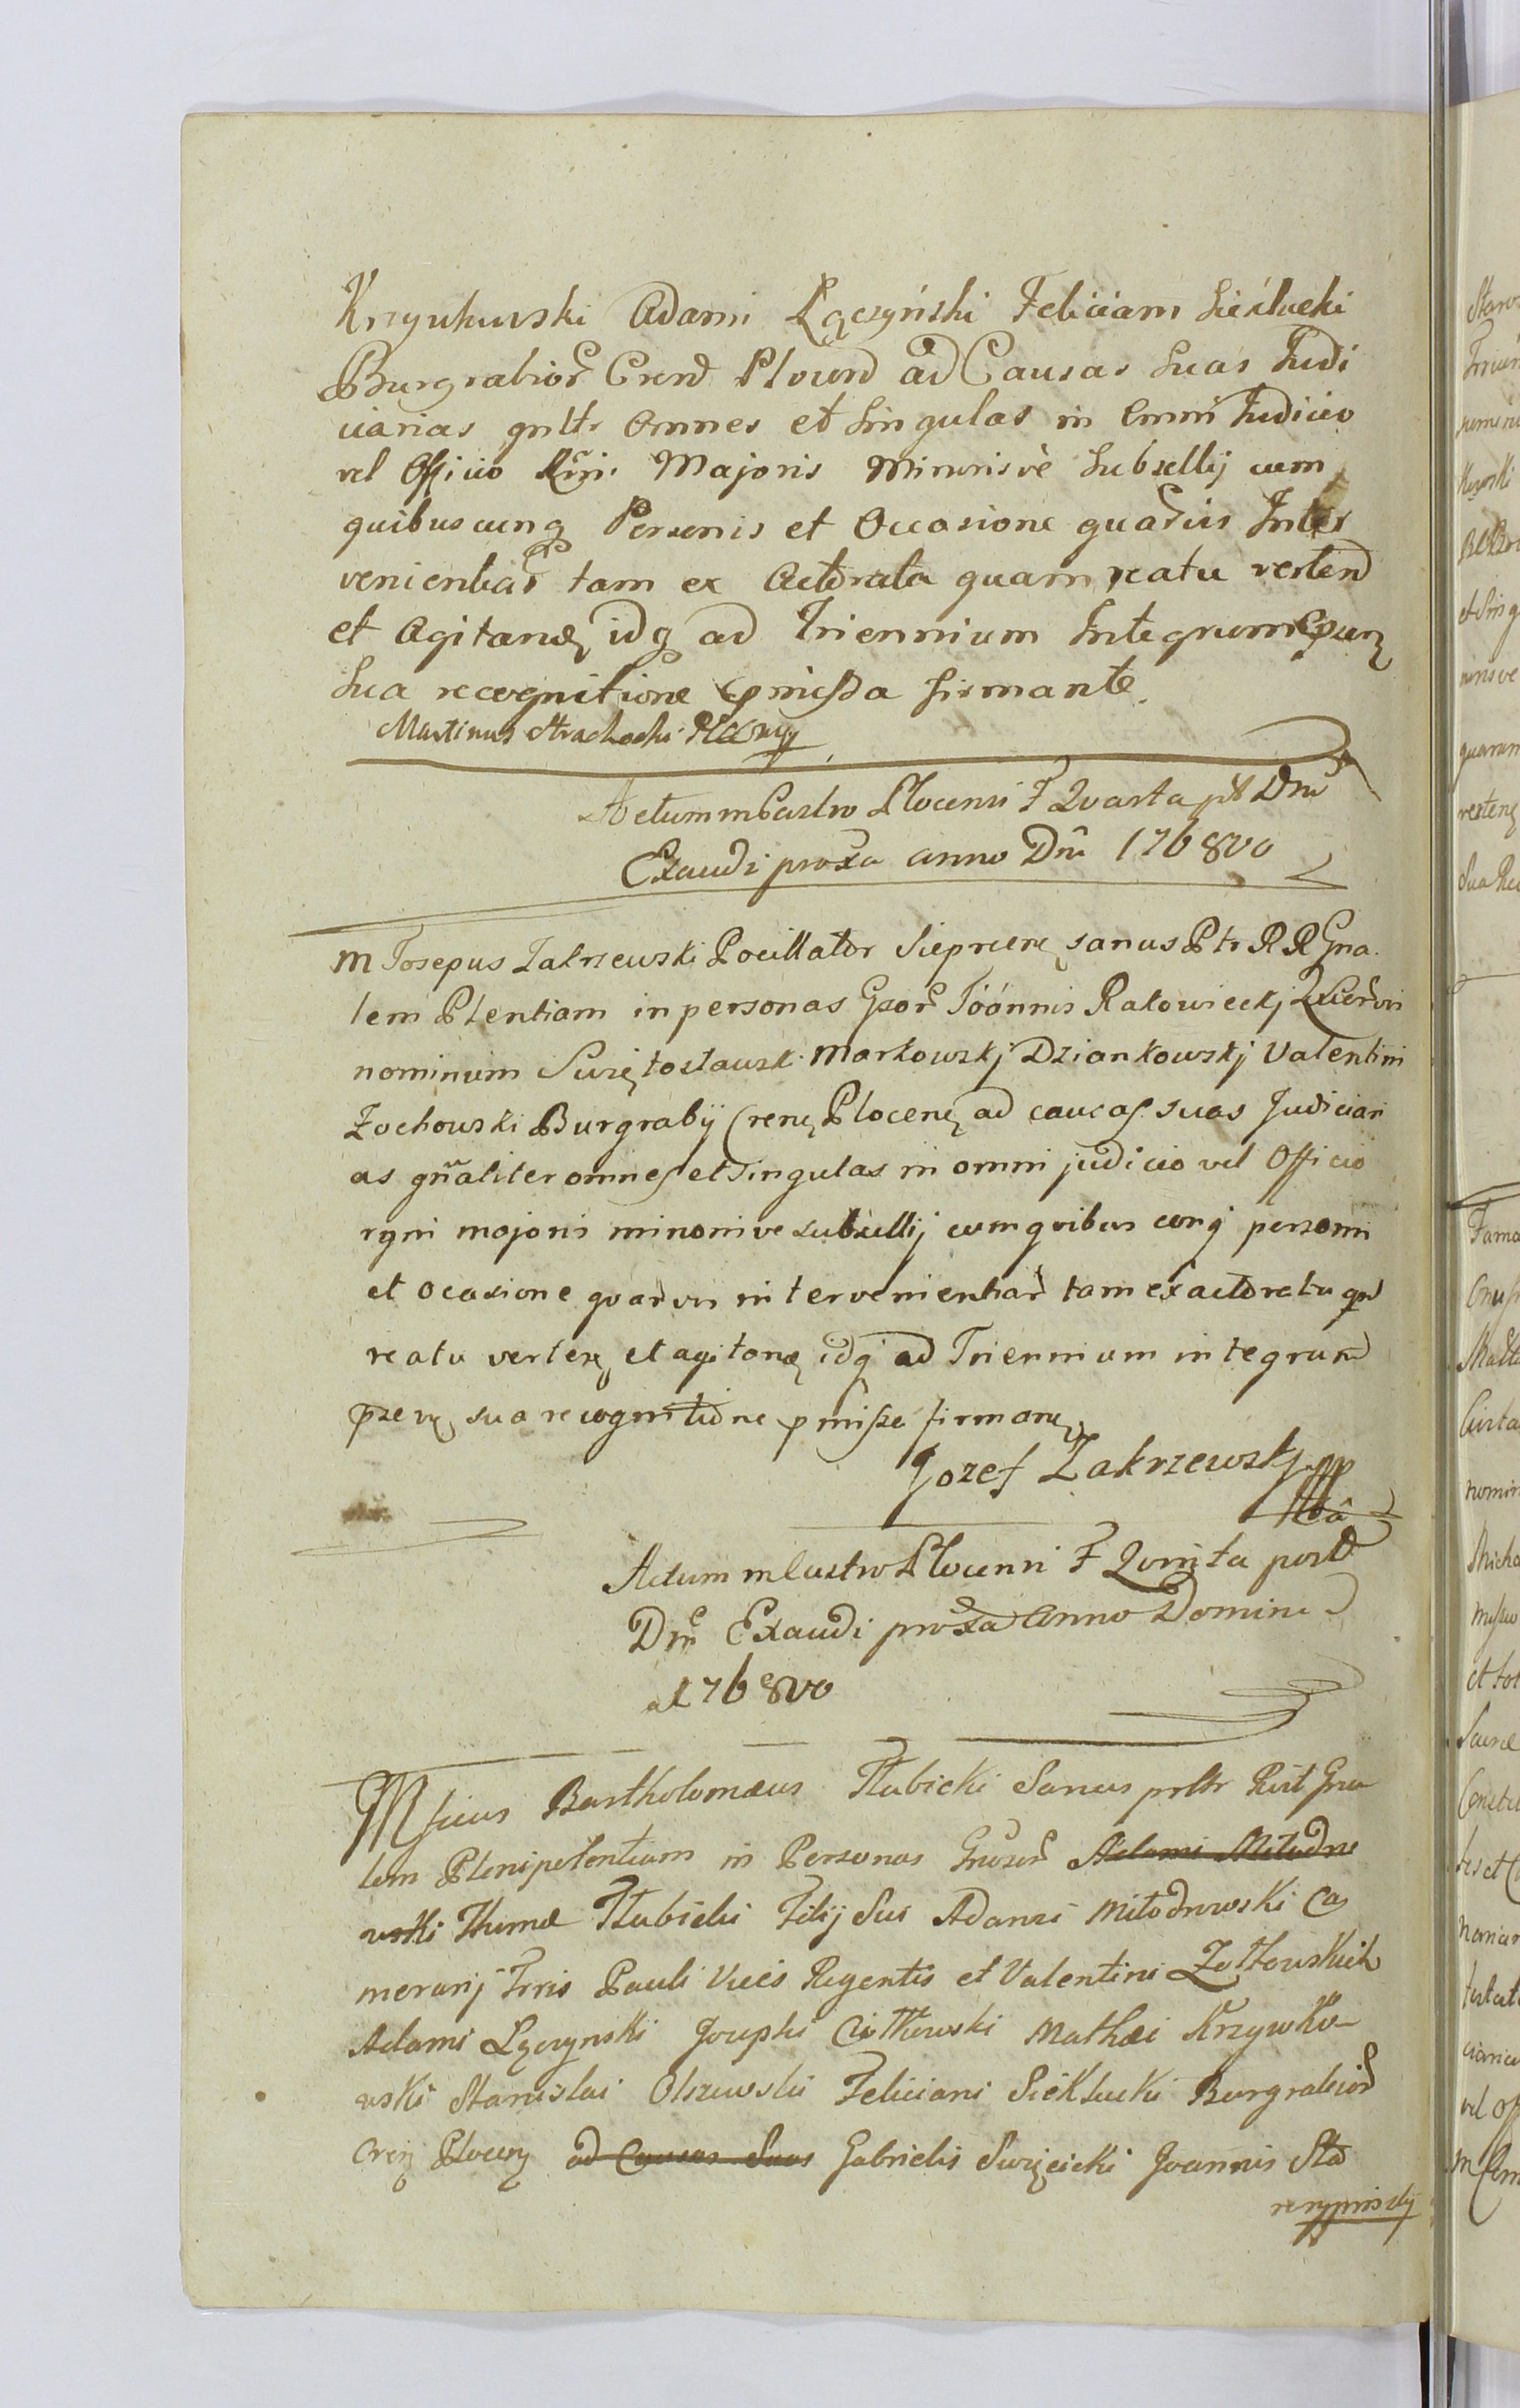 Krzywkowski Adami Łączyński Feliciam Siéklucki
Burgrabior Crens Plocens ad Causas Suas Judi
ciarias gnltr Omnes et Singulas in Omni Judicio
vel Officio Rgni Majoris Minorisvè Subsellij cum
quibuscunq Personis et Occasione quarvis Inter
venientiar tam ex Actoratu quam reatu verten
et Agitan idq ad Triennium Integrum
Sua recognitione pmissa firmante.
Martinus
Actum in Castro Plocensi F Quarta pt Dnu
Exaudi proxa anno Dni 1768vo
M Josepus Zakrzewski Pocillator Sieprcen sanus Ptr RR Gna
lem Pltentiam in personas Gsor Joónnis Rakowieckj
nominum Swiętosławsk Markowskj Dziankowskj Valentini
Zochowski Burgrabij Cren Plocen ad causas suas Judiciari
as gñaliter omnes et Singulas in omni judicio vel Officio
rgni majoris minorive subsellij cum quibus cunq personi
et ocasione quarvis intervenientiar tam ex actoratu qm
reatu verten et agitan idq ad Triennium integrum
psen sua recognitione pmisse firman
Jozef Zakrzewskj mpp
Actum in Castro Plocensi F Quinta post
Dm Exaudi proxa Anno Domini
1768vo
Mficus Bartholomæus Tłubicki Sanus pnltr Rict Gna
lem Plenipotentiam in Personas Gnosor Adami Miłodro
wski Thomæ Tłubicki Filij Sui Adami Miłodrowski Ca
merarij Trris Pauli Vices Regentis et Valentini Zółtowskich
Adami Łączynski Josephi Ciółkowski Mathæi Krzywko-
wski Stanislai Olszewski Feliciani Sieklucki Burgrabior
Cren Plocen ad Causas Suas Gabrielis Swięcicki Joannis Sta